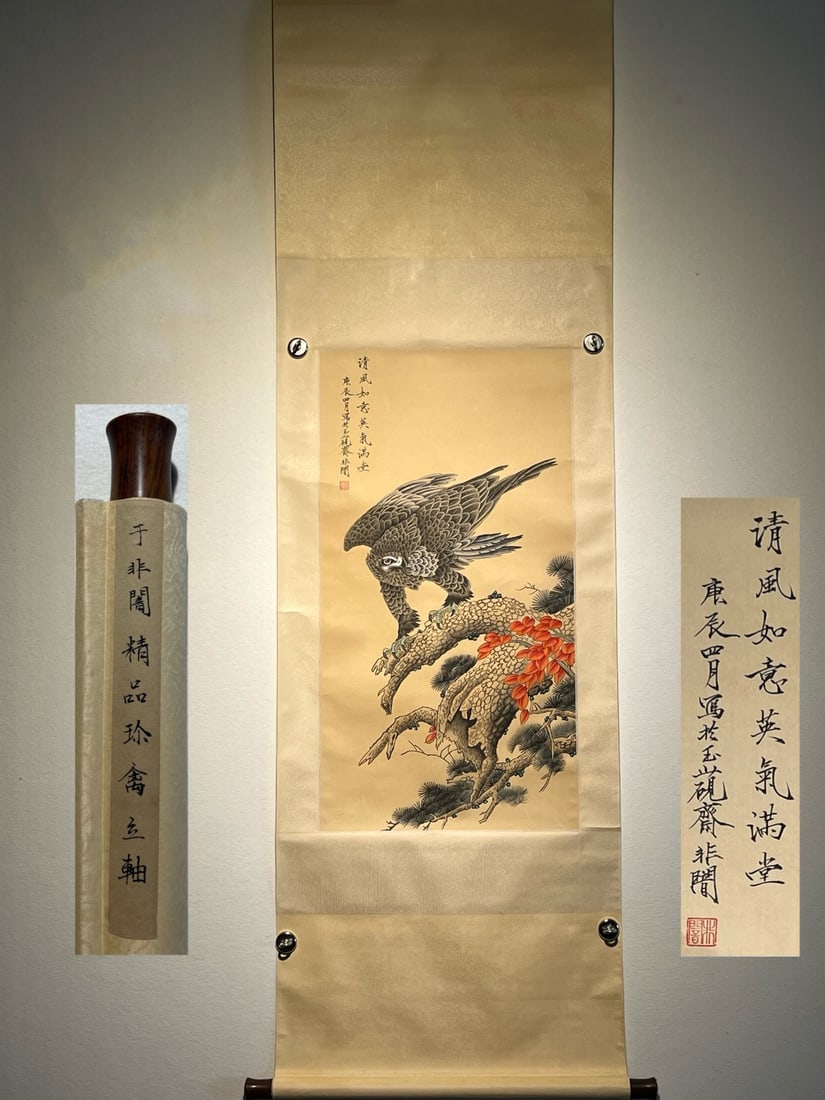 清風如意英氣滿堂
庚辰四月寫於玉山硯齋非闇
于非闇精品珎禽立軸
清風如意英氣滿堂
庚辰四月寫於玉山硯齋非闇
非闇